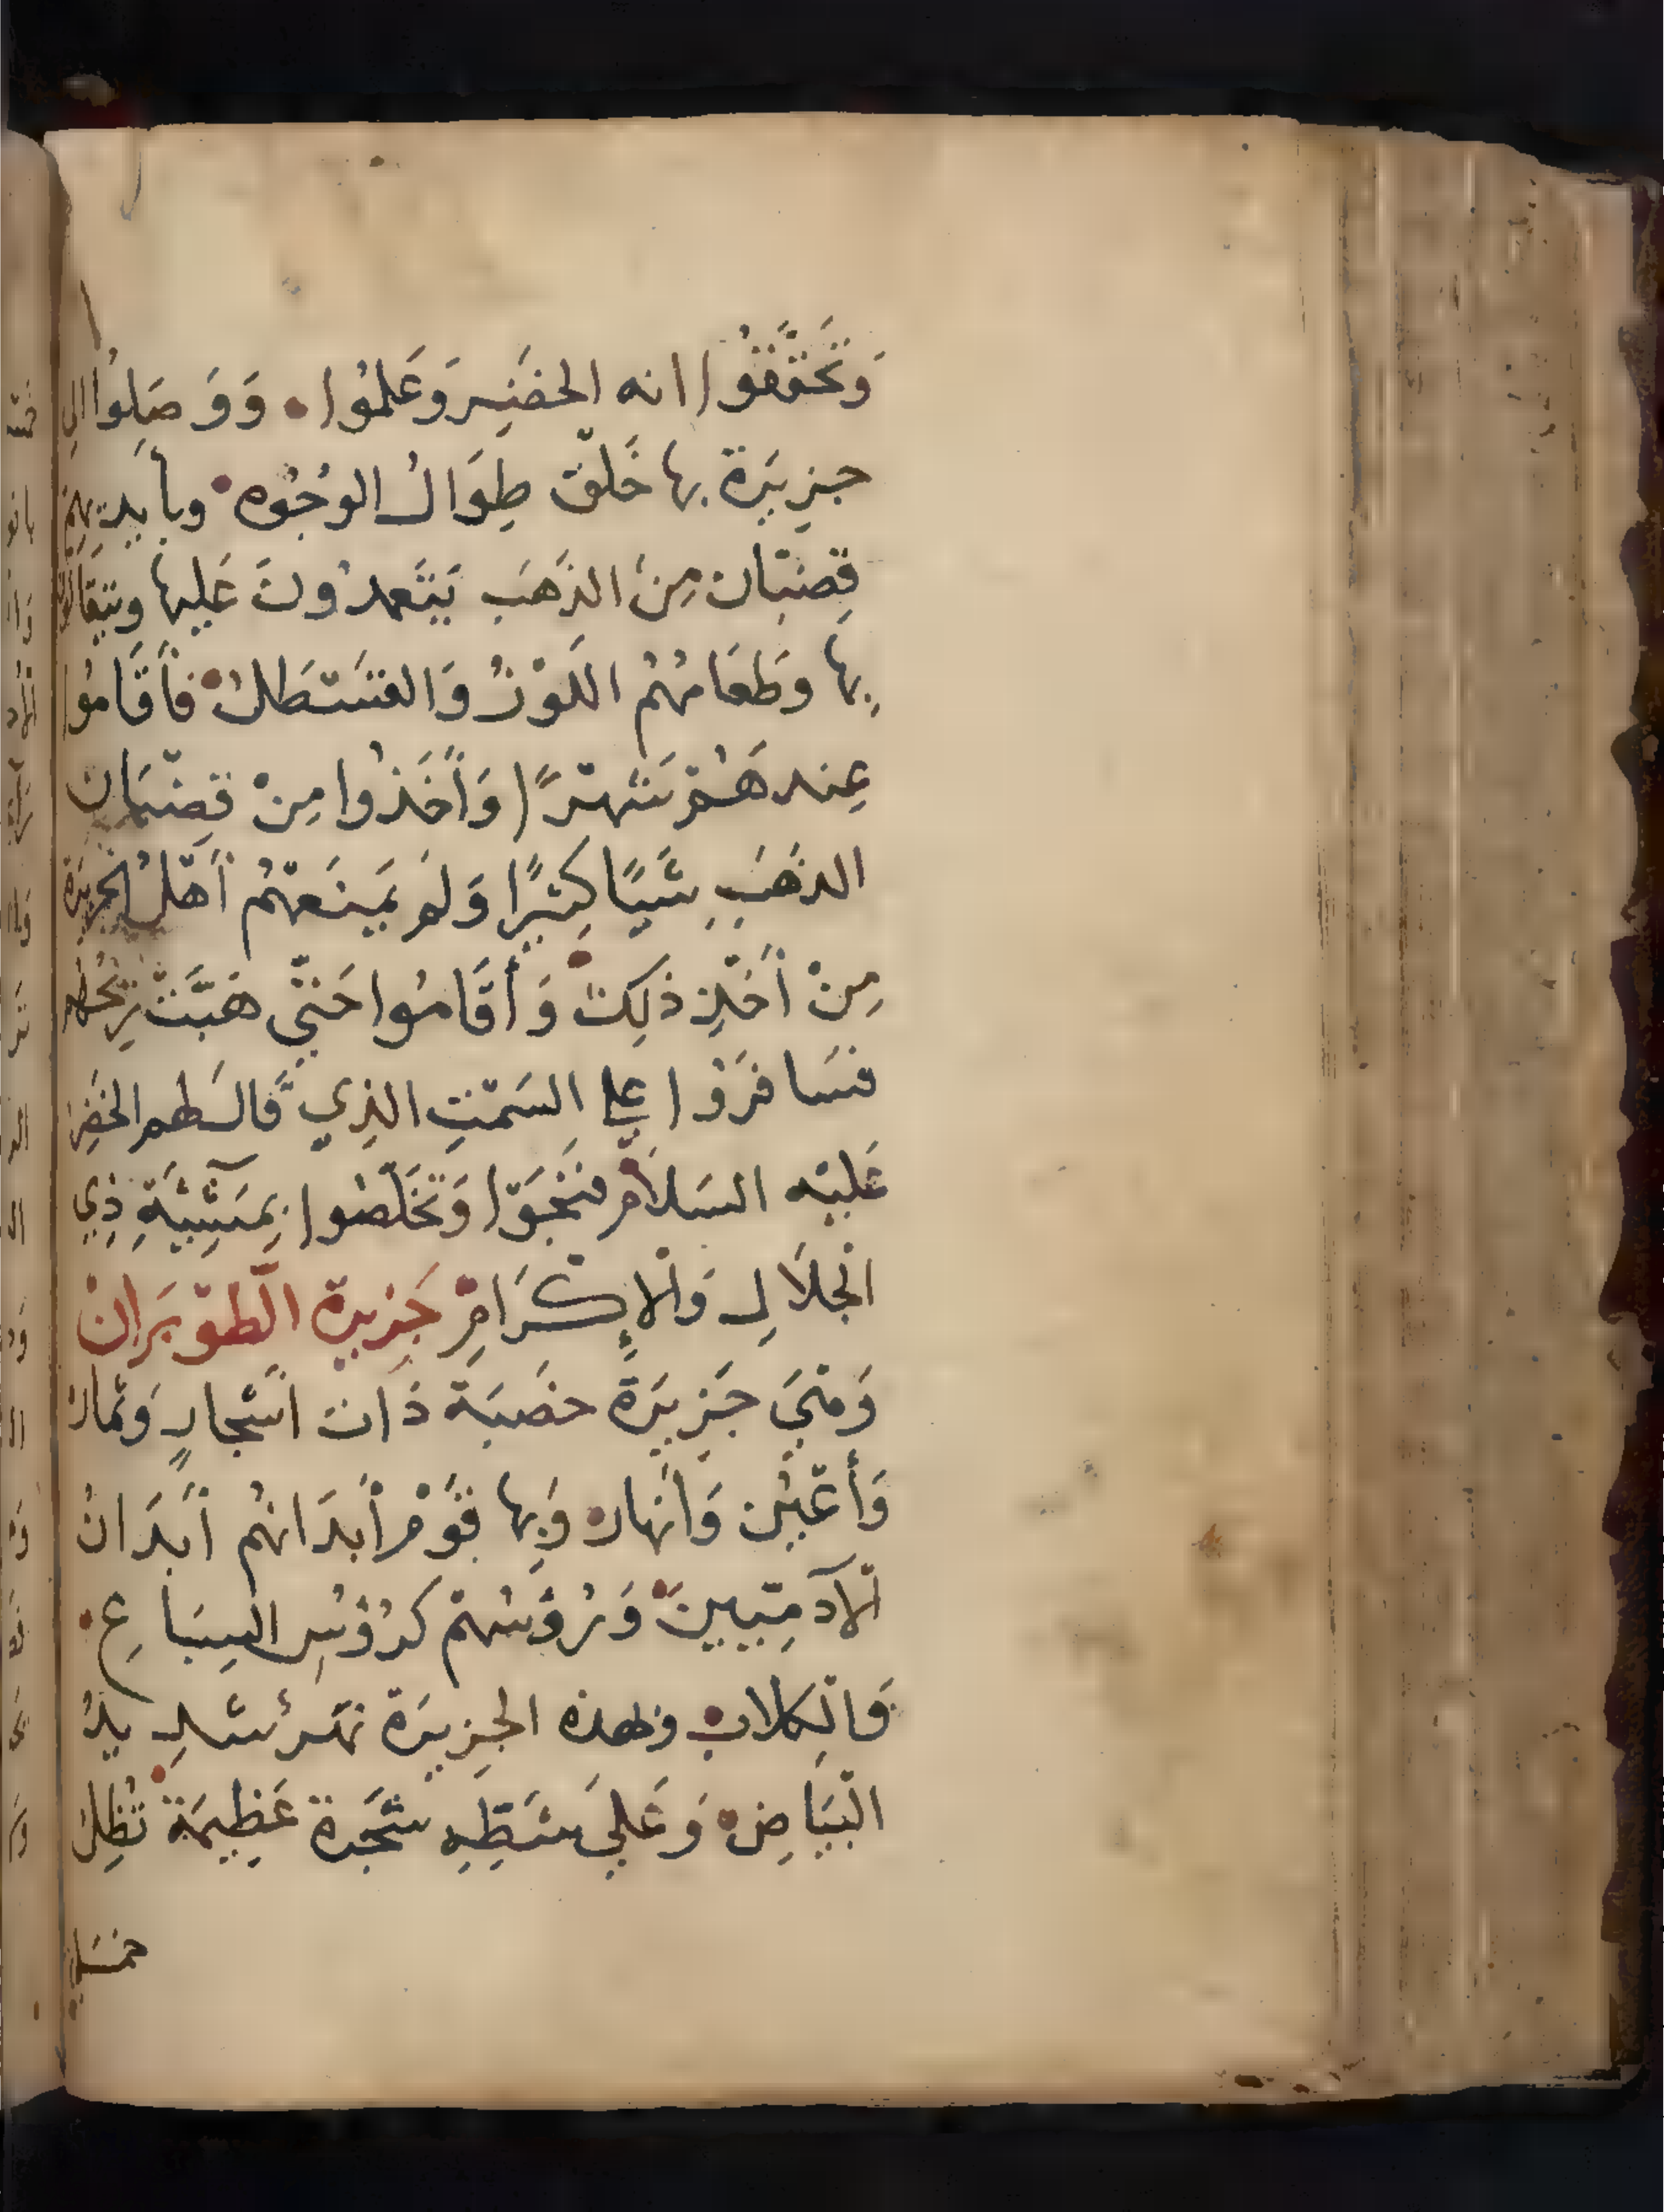 وَتَحَقَّقُوا انه الخضِر وَعَلمُوا . وَوَصَلوُا الى
جزِيرَة بها خَلق طِوَالُ الوُجُوه . وبأيديهِم
قِضبَان مِنَ الذهَب يَتَعمدُونَ عَليها ويتقاتلون
بِها وَطَعَامُهُم اللَوْزُ وَالقَسْطَلُ . فأَقَامُوا
عِندهَمُ شَهرًا وَأَخَذُوا مِنْ قضبَان
الذهَبِ شَيًا كَثيِرًا وَلَم يَمنَعهُم أَهْلُ الجزيرَة
مِنْ أَخْذِ ذَلِكَ . وَأَقَامُوا حَتي هَبَّتْ رِيحُهم
فسَافَرُوا علي السَمْتِ الذِي قَالَ لهم الخَضِر
عَليْه السَلَام . فَنَجَوْا وَتَخَلَصُوا بِمَشِيَّةِ ذِي
الْجلَالِ وَالْإِكْرَامِ . جَزِيرة الطوَيَرانْ
وَهيَ جَزِيرَةً خصَبَة ذَات اَشجارٍ وَثمار
وَأَعْيُن وَأَنهار . وَبِها قَوْم أَبدَانهُم أَبدَانُ
الْآدمِيينَ . وَرُؤسُهُمْ كرُؤسِ السِبَاعِ .
وَالْكِلاب . ولهذه الجزِيرَة نهَرُ شَدِيدُ
البْيَاضِ . وَعَليَ شَطِهِ شَجَرة عَظِيمَة . تُظِلُ
خمسَماية